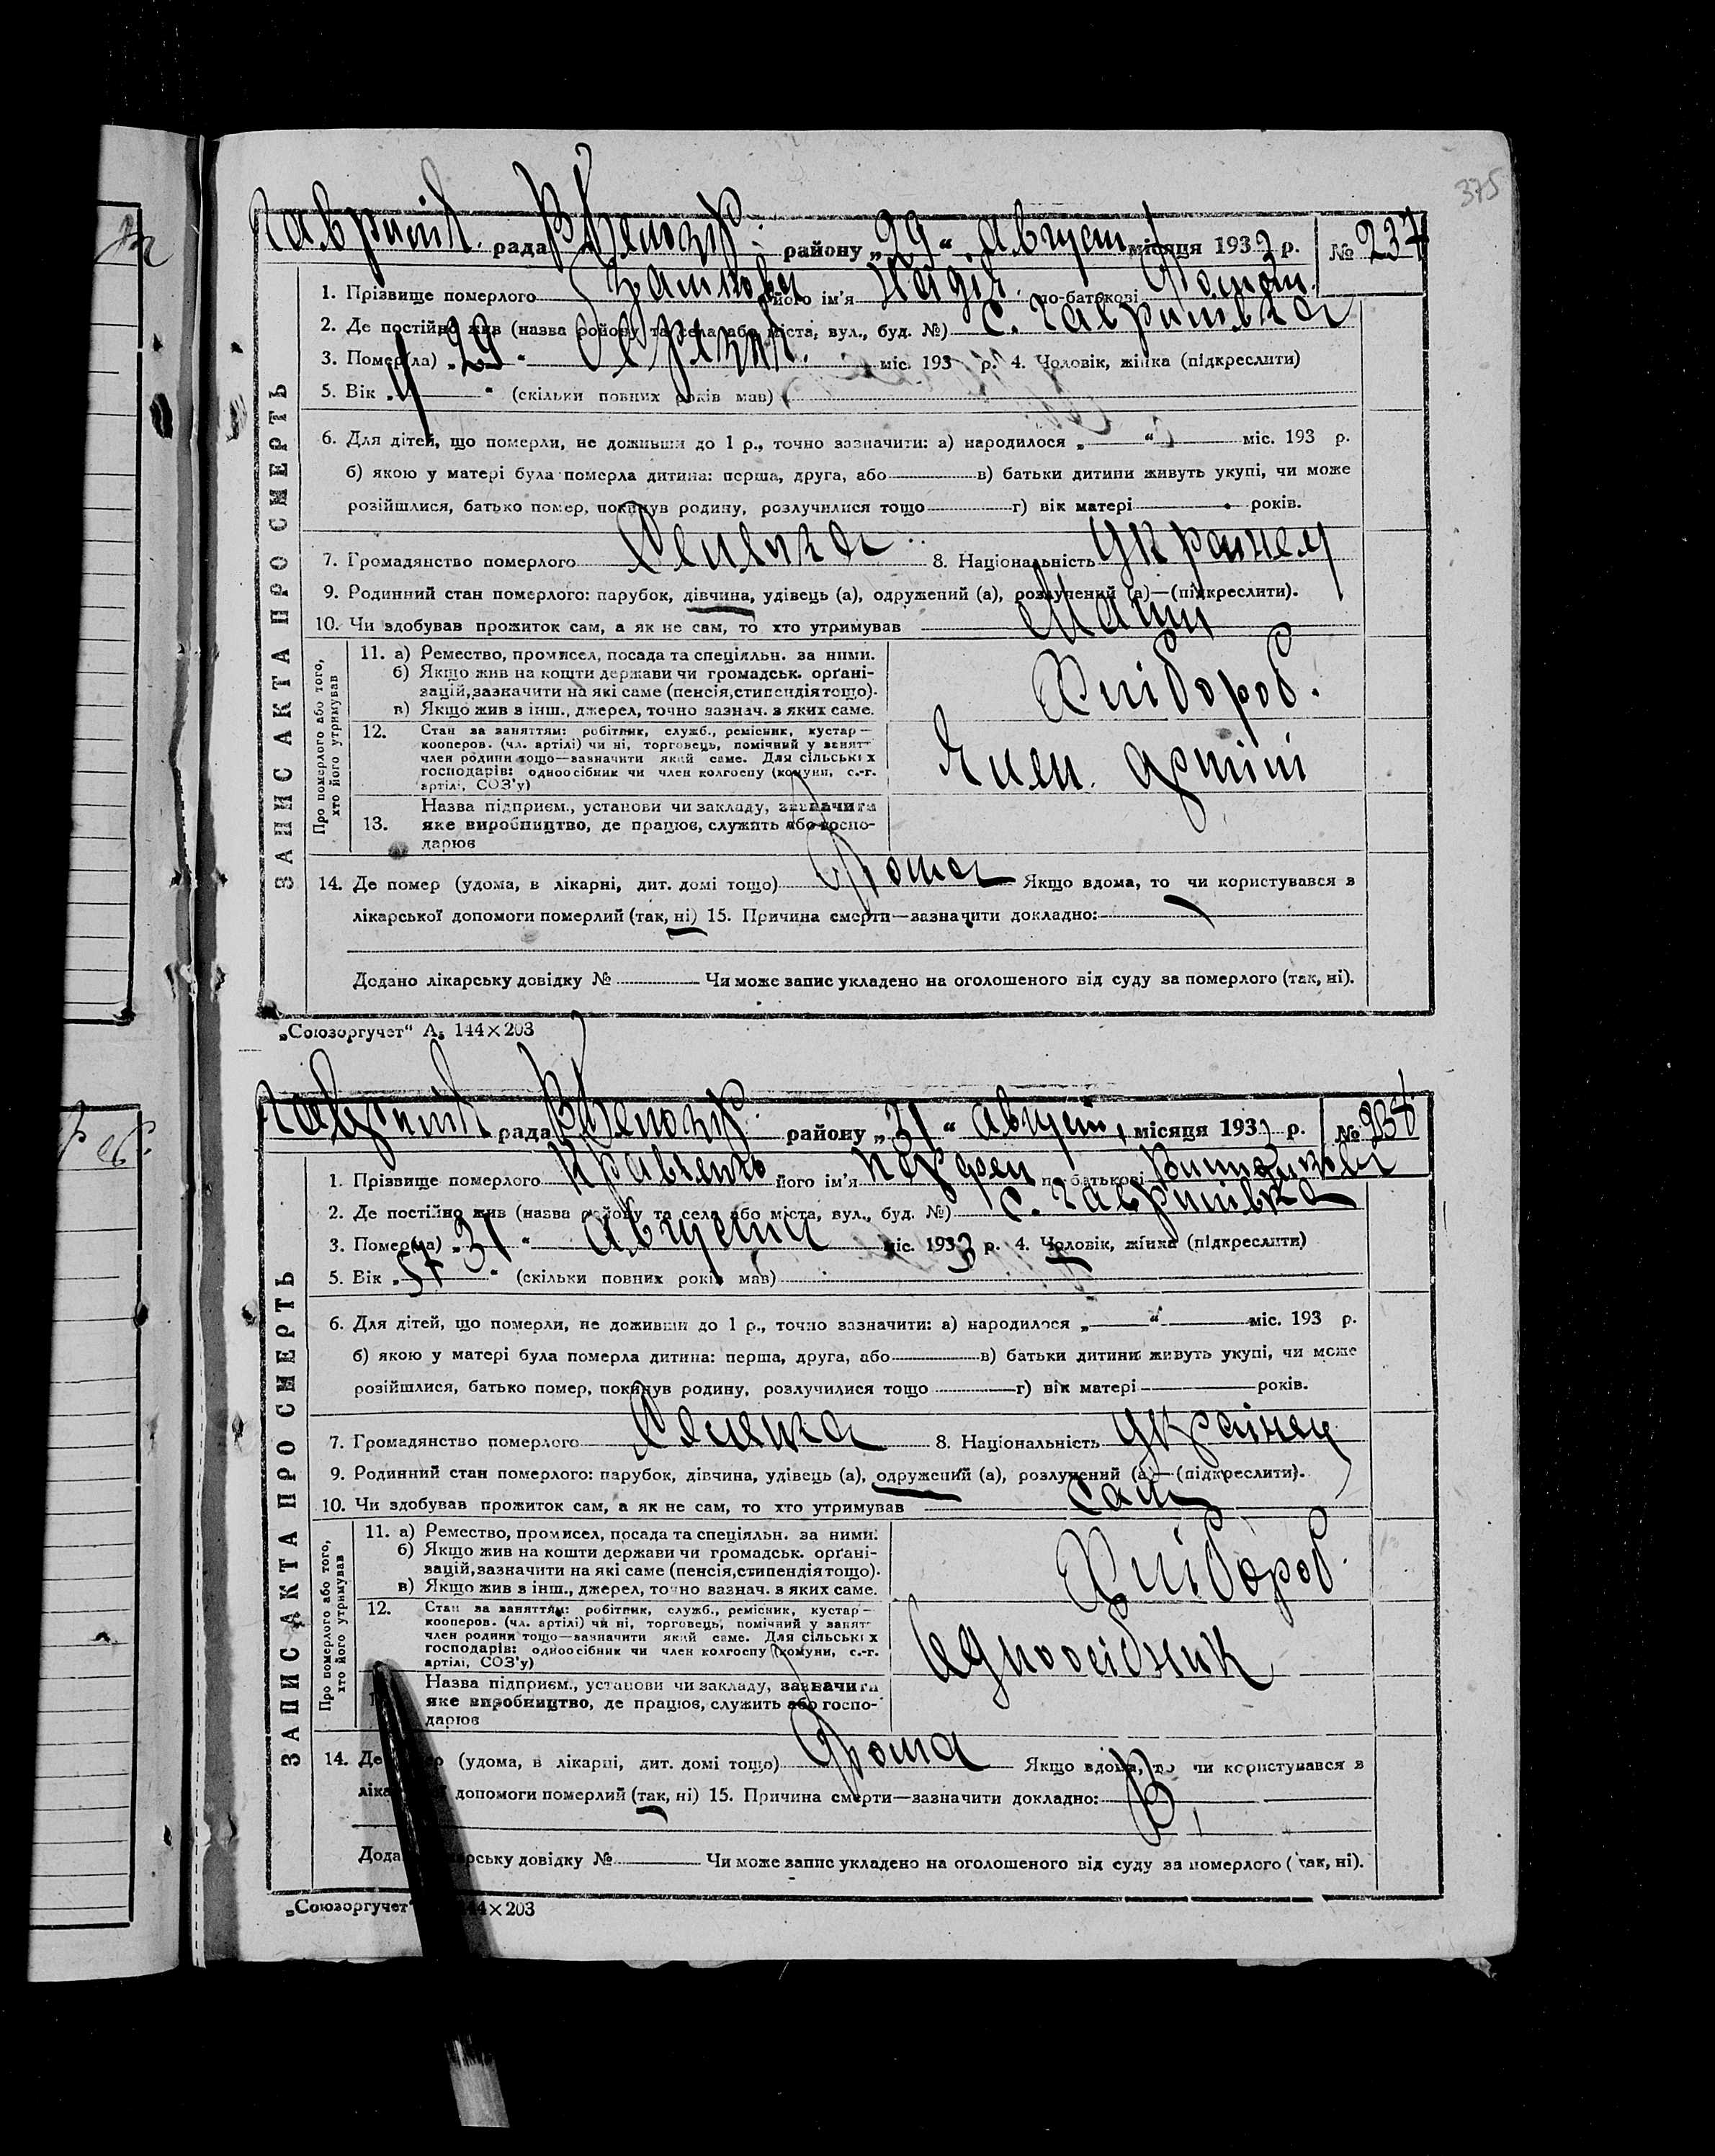 375
Гаврилів. рада району „29“ август місяця 1933 р. № 237
ЗАПИС АКТА ПРО СМЕРТЬ
1. Прізвище померлого його ім'я Надія по-батькові
2. Де постійно жив (назва району та села або міста, вул., буд. №) с. Гаврилівка
3. Помер(ла) „29“ міс. 193 р. 4. Чоловік, жінка (підкреслити)
5. Вік „ “ (скільки повних років мав)
6. Для дітей, що померли, не доживши до 1 р., точно зазначити: а) народилося „ “ міс. 193 р.
б) якою у матері була померла дитина: перша, друга, або в) батьки дитини живуть укупі, чи може
розійшлися, батько помер, покинув родину, розлучилися тощо г) вік матері років.
7. Громадянство померлого 8. Національність Українец
9. Родинний стан померлого: парубок, дівчина, удівець (а), одружений (а), розлучений (а)—(підкреслити).
10. Чи здобував прожиток сам, а як не сам, то хто утримував Мати
Про померлого або того, хто його утримував
11. а) Ремество, промисел, посада та спеціяльн. за ними.
б) Якщо жив на кошти держави чи громадськ. орґані-
зацій, зазначити на які саме (пенсія, стипендія тощо).
в) Якщо жив з інш., джерел, точно зазнач. з яких саме.
Хлібороб.
12. Стан за заняттям: робітник, служб., ремісник, кустар—
кооперов. (чл. артілі) чи ні, торговець, помічний у занятт
член родини тощо—зазначити який саме. Для сільських
господарів: одноосібник чи член колгоспу (комуни, с.-г.
артілі, СОЗ'у)
Член. артілі
13. Назва підприєм., установи чи закладу, зазначити
яке виробництво, де працює, служить або госпо-
дарює
14. Де помер (удома, в лікарні, дит. домі тощо) Дома Якщо вдома, то чи користувався в
лікарської допомоги померлий (так, ні) 15. Причина смерти—зазначити докладно:
Додано лікарську довідку № Чи може запис укладено на оголошеного від суду за померлого (так, ні).
„Союзоргучет“ А₅ 144×203
Гаврилів рада району „31“ август, місяця 1933 р. № 238
ЗАПИС АКТА ПРО СМЕРТЬ
1. Прізвище померлого Кравченко його ім'я по-батькові
2. Де постійно жив (назва району та села або міста, вул., буд. №) с. Гаврилівка
3. Помер(ла) „31“ Августа міс. 1933 р. 4. Чоловік, жінка (підкреслити)
5. Вік „57“ (скільки повних років мав)
6. Для дітей, що померли, не доживши до 1 р., точно зазначити: а) народилося „ “ міс. 193 р.
б) якою у матері була померла дитина: перша, друга, або в) батьки дитини живуть укупі, чи може
розійшлися, батько помер, покинув родину, розлучилися тощо г) вік матері років.
7. Громадянство померлого 8. Національність Українец
9. Родинний стан померлого: парубок, дівчина, удівець (а), одружений (а), розлучений (а)—(підкреслити).
10. Чи здобував прожиток сам, а як не сам, то хто утримував Сам
Про померлого або того, хто його утримував
11. а) Ремество, промисел, посада та спеціяльн. за ними.
б) Якщо жив на кошти держави чи громадськ. орґані-
зацій, зазначити на які саме (пенсія, стипендія тощо).
в) Якщо жив з інш., джерел, точно зазнач. з яких саме.
Хлібороб.
12. Стан за заняттям: робітник, служб., ремісник, кустар—
кооперов. (чл. артілі) чи ні, торговець, помічний у занятт
член родини тощо—зазначити який саме. Для сільських
господарів: одноосібник чи член колгоспу (комуни, с.-г.
артілі, СОЗ'у)
Одноосібник
Назва підприєм., установи чи закладу, зазначити
яке виробництво, де працює, служить або госпо-
дарює
14. Де (удома, в лікарні, дит. домі тощо) Дома Якщо вдома, то чи користувався в
допомоги померлий (так, ні) 15. Причина смерти—зазначити докладно:
довідку № Чи може запис укладено на оголошеного від суду за померлого (так, ні).
„Союзоргучет“ 144×203